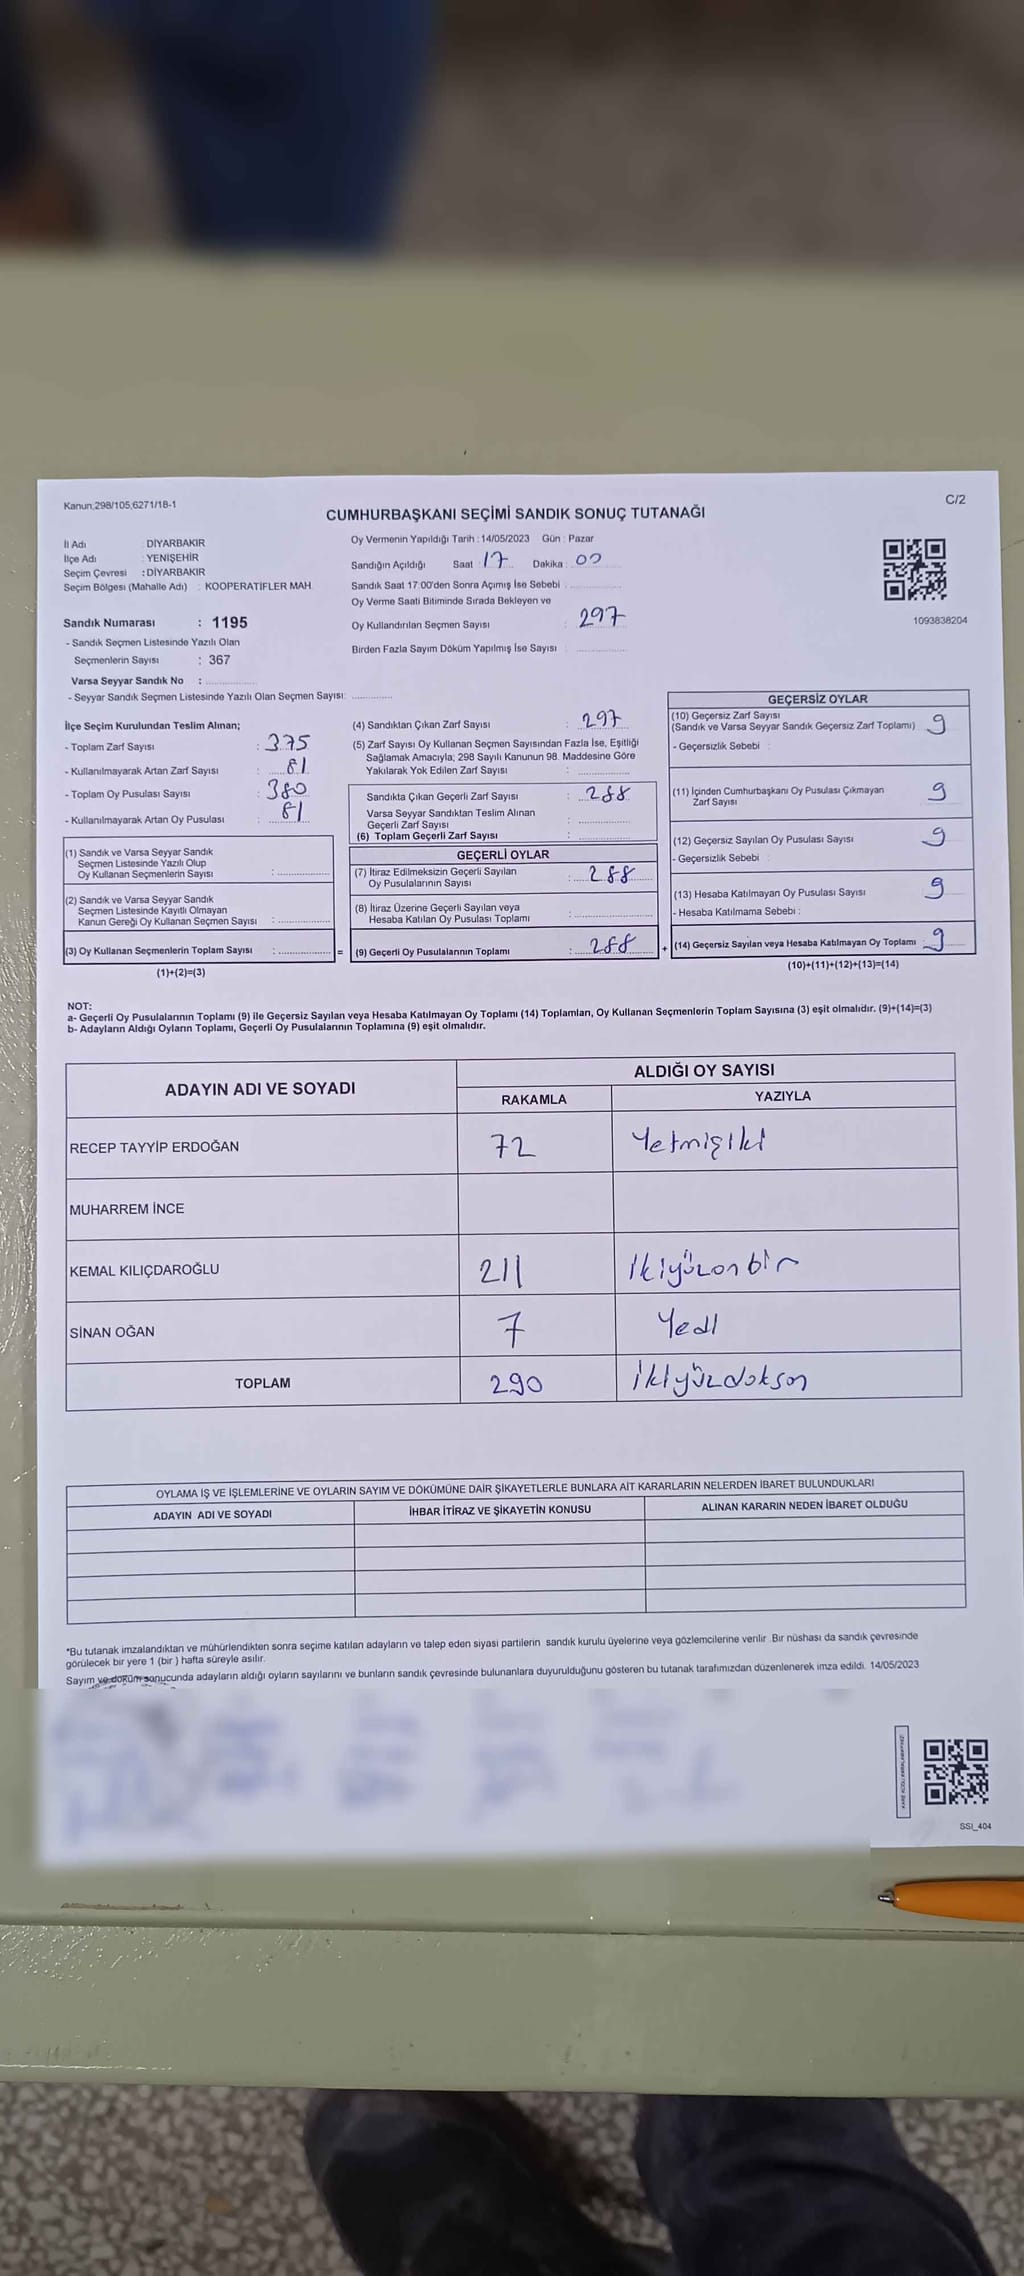 Kanun;298/105;6271/18-1
C/2
CUMHURBAŞKANI SEÇİMİ SANDIK SONUÇ TUTANAĞI
İl Adı : DİYARBAKIR
İlçe Adı : YENİŞEHİR
Seçim Çevresi : DİYARBAKIR
Seçim Bölgesi (Mahalle Adı) : KOOPERATİFLER MAH.
Oy Vermenin Yapıldığı Tarih : 14/05/2023 Gün : Pazar
Sandığın Açıldığı Saat : 17 Dakika : 00
Sandık Saat 17.00'den Sonra Açımış İse Sebebi :
Oy Verme Saati Bitiminde Sırada Bekleyen ve
Oy Kullandırılan Seçmen Sayısı : 297
Birden Fazla Sayım Döküm Yapılmış İse Sayısı :
1093838204
Sandık Numarası : 1195
- Sandık Seçmen Listesinde Yazılı Olan
Seçmenlerin Sayısı : 367
Varsa Seyyar Sandık No :
- Seyyar Sandık Seçmen Listesinde Yazılı Olan Seçmen Sayısı:
İlçe Seçim Kurulundan Teslim Alınan;
- Toplam Zarf Sayısı : 375
- Kullanılmayarak Artan Zarf Sayısı : 81
- Toplam Oy Pusulası Sayısı : 380
- Kullanılmayarak Artan Oy Pusulası : 81
(1) Sandık ve Varsa Seyyar Sandık
Seçmen Listesinde Yazılı Olup
Oy Kullanan Seçmenlerin Sayısı :
(2) Sandık ve Varsa Seyyar Sandık
Seçmen Listesinde Kayıtlı Olmayan
Kanun Gereği Oy Kullanan Seçmen Sayısı :
(3) Oy Kullanan Seçmenlerin Toplam Sayısı : =
(1)+(2)=(3)
(4) Sandıktan Çıkan Zarf Sayısı : 297
(5) Zarf Sayısı Oy Kullanan Seçmen Sayısından Fazla İse, Eşitliği
Sağlamak Amacıyla; 298 Sayılı Kanunun 98. Maddesine Göre
Yakılarak Yok Edilen Zarf Sayısı :
Sandıkta Çıkan Geçerli Zarf Sayısı : 288
Varsa Seyyar Sandıktan Teslim Alınan
Geçerli Zarf Sayısı :
(6) Toplam Geçerli Zarf Sayısı :
GEÇERLİ OYLAR
(7) İtiraz Edilmeksizin Geçerli Sayılan
Oy Pusulalarının Sayısı : 288
(8) İtiraz Üzerine Geçerli Sayılan veya
Hesaba Katılan Oy Pusulası Toplamı :
(9) Geçerli Oy Pusulalarının Toplamı : 288 +
GEÇERSİZ OYLAR
(10) Geçersiz Zarf Sayısı
(Sandık ve Varsa Seyyar Sandık Geçersiz Zarf Toplamı) : 9
- Geçersizlik Sebebi :
(11) İçinden Cumhurbaşkanı Oy Pusulası Çıkmayan
Zarf Sayısı 9
(12) Geçersiz Sayılan Oy Pusulası Sayısı 9
- Geçersizlik Sebebi :
(13) Hesaba Katılmayan Oy Pusulası Sayısı 9
- Hesaba Katılmama Sebebi :
(14) Geçersiz Sayılan veya Hesaba Katılmayan Oy Toplamı 9
(10)+(11)+(12)+(13)=(14)
NOT:
a- Geçerli Oy Pusulalarının Toplamı (9) ile Geçersiz Sayılan veya Hesaba Katılmayan Oy Toplamı (14) Toplamları, Oy Kullanan Seçmenlerin Toplam Sayısına (3) eşit olmalıdır. (9)+(14)=(3)
b- Adayların Aldığı Oyların Toplamı, Geçerli Oy Pusulalarının Toplamına (9) eşit olmalıdır.
ADAYIN ADI VE SOYADI
ALDIĞI OY SAYISI
RAKAMLA YAZIYLA
RECEP TAYYİP ERDOĞAN 72 Yetmişiki
MUHARREM İNCE
KEMAL KILIÇDAROĞLU 211 İkiyüzonbir
SİNAN OĞAN 7 Yedi
TOPLAM 290 İkiyüzdoksan
OYLAMA İŞ VE İŞLEMLERİNE VE OYLARIN SAYIM VE DÖKÜMÜNE DAİR ŞİKAYETLERLE BUNLARA AİT KARARLARIN NELERDEN İBARET BULUNDUKLARI
ADAYIN ADI VE SOYADI İHBAR İTİRAZ VE ŞİKAYETİN KONUSU ALINAN KARARIN NEDEN İBARET OLDUĞU
*Bu tutanak imzalandıktan ve mühürlendikten sonra seçime katılan adayların ve talep eden siyasi partilerin sandık kurulu üyelerine veya gözlemcilerine verilir .Bir nüshası da sandık çevresinde
görülecek bir yere 1 (bir ) hafta süreyle asılır.
Sayım ve döküm sonucunda adayların aldığı oyların sayılarını ve bunların sandık çevresinde bulunanlara duyurulduğunu gösteren bu tutanak tarafımızdan düzenlenerek imza edildi. 14/05/2023
SSI_404